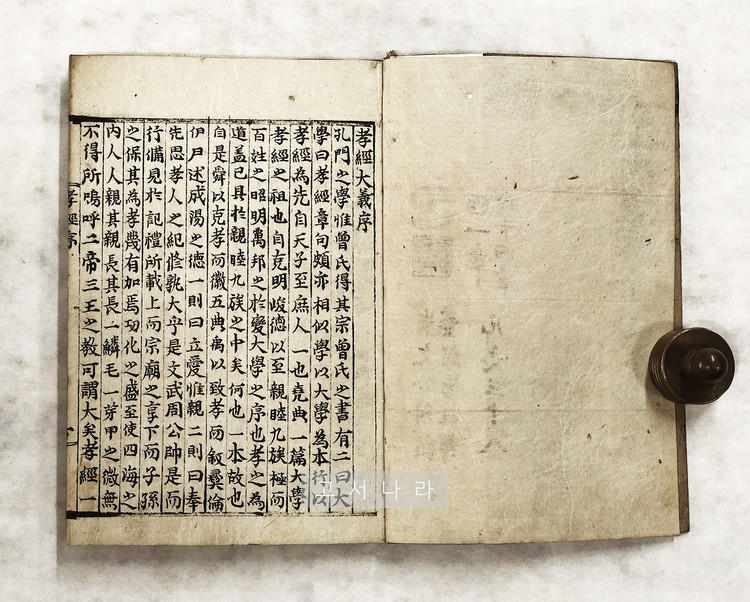 孝經大義序
孔門之學惟曾氏得其宗曾氏之書有二曰大
學曰孝經章句頗亦相似學以大學為本行以
孝經為先自天子至庶人一也堯典一篇大學
孝經之祖也自克明峻德以至親睦九族極而
百姓之昭明萬邦之於變大學之序也孝之為
道盖已具於親睦九族之中矣何也一本故也
自是舜以克孝而徽五典禹以致孝而敍彛倫
伊尹述成湯之德一則曰立愛惟親二則曰奉
先思孝人之紀修孰大乎是文武周公帥是而
行備見於記禮所載上而宗廟之享下而子孫
之保其為孝幾有加焉功化之盛至使四海之
內人人親其親長其長一鱗毛一芽甲之微無
不得所嗚呼二帝三王之教可謂大矣孝經一
孝經序
고서나라